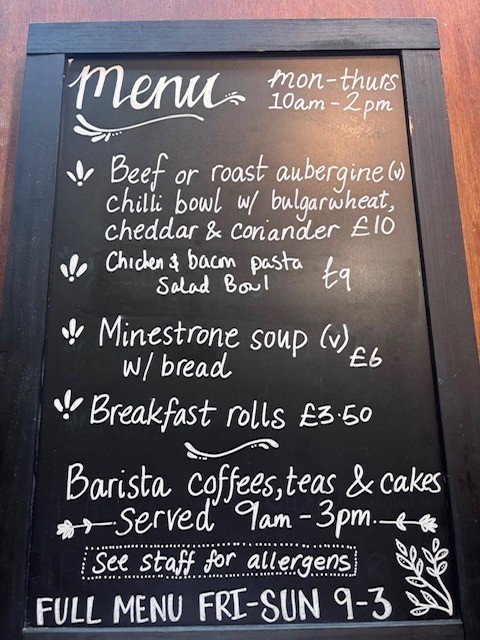 Menu
mon-thurs
10am-2pm
Beef or roast aubergine (v)
chilli bowl w/ bulgarwheat,
cheddar & coriander £10
Chicken & bacon pasta
Salad Bowl £9
Minestrone soup (v)
w/ bread £6
Breakfast rolls £3.50
Barista coffees, teas & cakes
served 9am-3pm
See staff for allergens
FULL MENU FRI-SUN 9-3